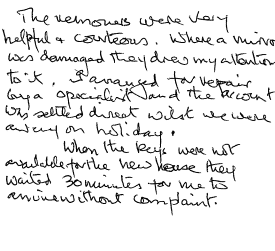 The removers were very
helpful & courteous. Where a mirror
was damaged they drew my attention
to it. I arranged for repair
by a specialist and the account
was settled direct whilst we were
away on holiday.
When the keys were not
available for the new house they
waited 30 minutes for me to
arrive without complaint.